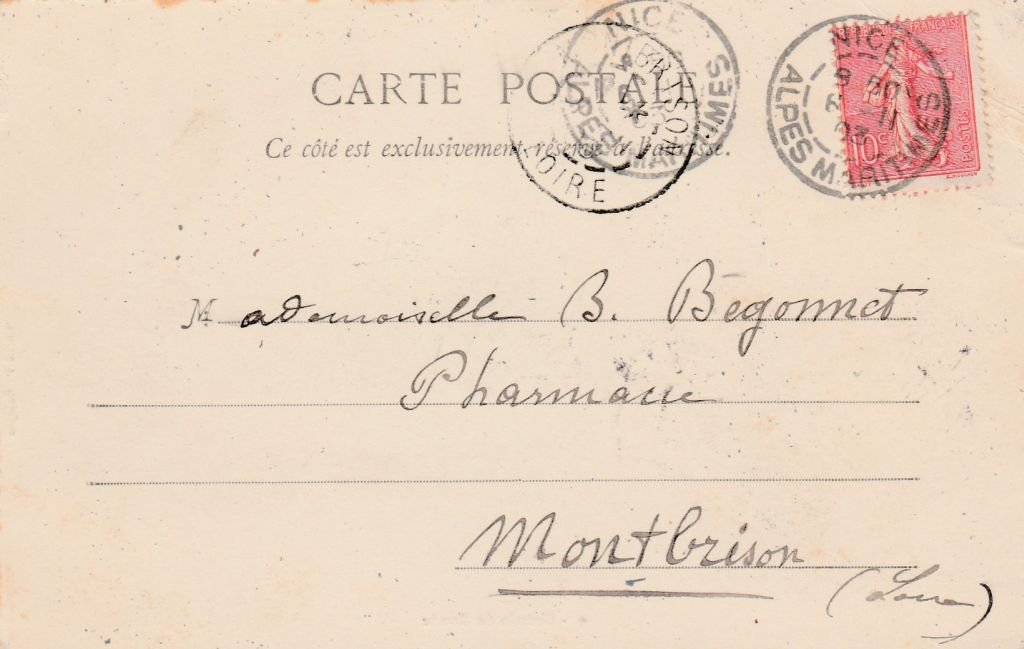 RÉPUBLIQUE FRANÇAISE
10c
POSTES
NICE
ALPES MARITIMES
NICE
ALPES MARITIMES
MONTBRISON
LOIRE
CARTE POSTALE
Ce côté est exclusivement réservé à l'adresse.
Mademoiselle B. Begonnet
Pharmacie
Montbrison
(Loire)